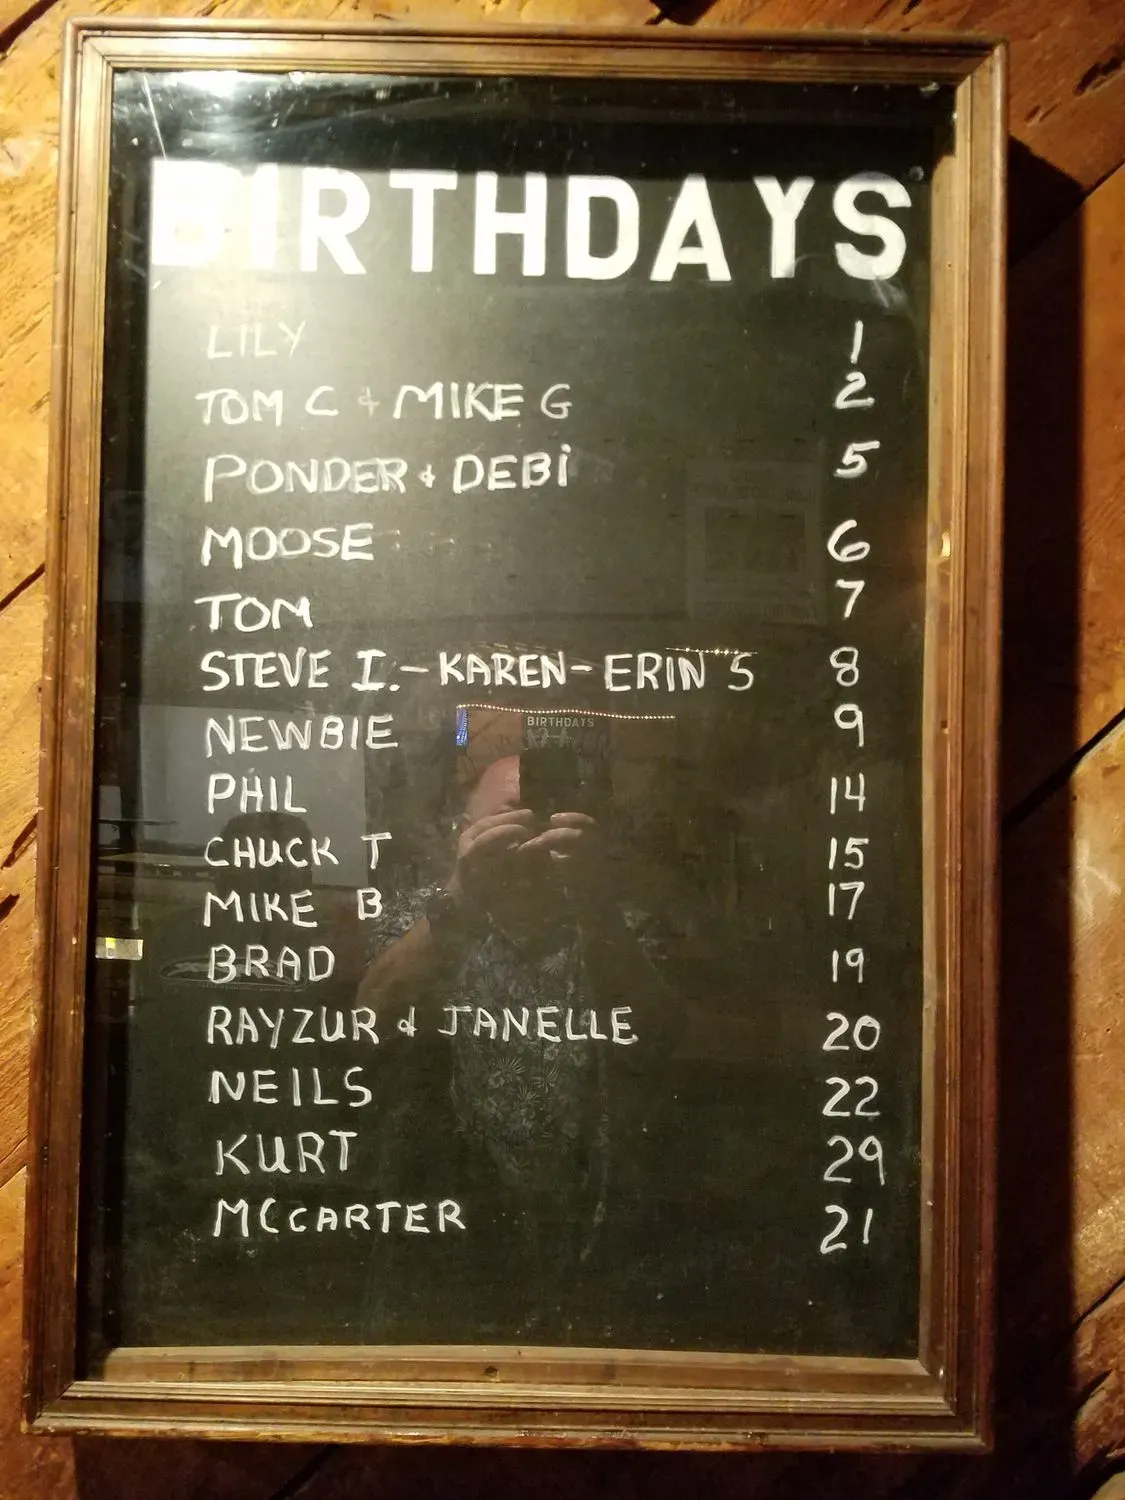 BIRTHDAYS
LILY 1
TOM C & MIKE G 2
PONDER & DEBi 5
MOOSE 6
TOM 7
STEVE I.-KAREN-ERIN S 8
NEWBIE 9
PHIL 14
CHUCK T 15
MIKE B 17
BRAD 19
RAYZUR & JANELLE 20
NEILS 22
KURT 29
MCCARTER 21
BIRTHDAYS